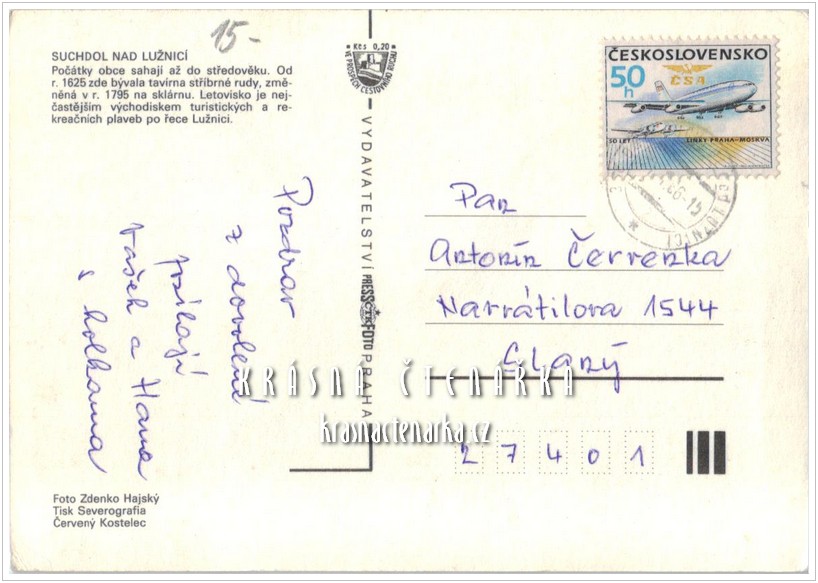 15-
SUCHDOL NAD LUŽNICÍ
Počátky obce sahají až do středověku. Od
r. 1625 zde bývala tavírna stříbrné rudy, změ-
něná v r. 1795 na sklárnu. Letovisko je nej-
častějším východiskem turistických a re-
kreačních plaveb po řece Lužnici.
Kčs 0,20
VE PROSPĚCH CESTOVNÍHO RUCHU
ČESKOSLOVENSKO
50 h
ČSA
50 LET LINKY PRAHA-MOSKVA
LUŽNICÍ
86-15
VYDAVATELSTVÍ PRESSFOTO PRAHA
Pozdrav
z dovolené
posílají
Vašek a Hana
s holkama
Pan
Antonín Červenka
Navrátilova 1544
Slaný
27401
KRÁSNÁ ČTENÁŘKA
krasnactenarka.cz
Foto Zdenko Hajský
Tisk Severografia
Červený Kostelec